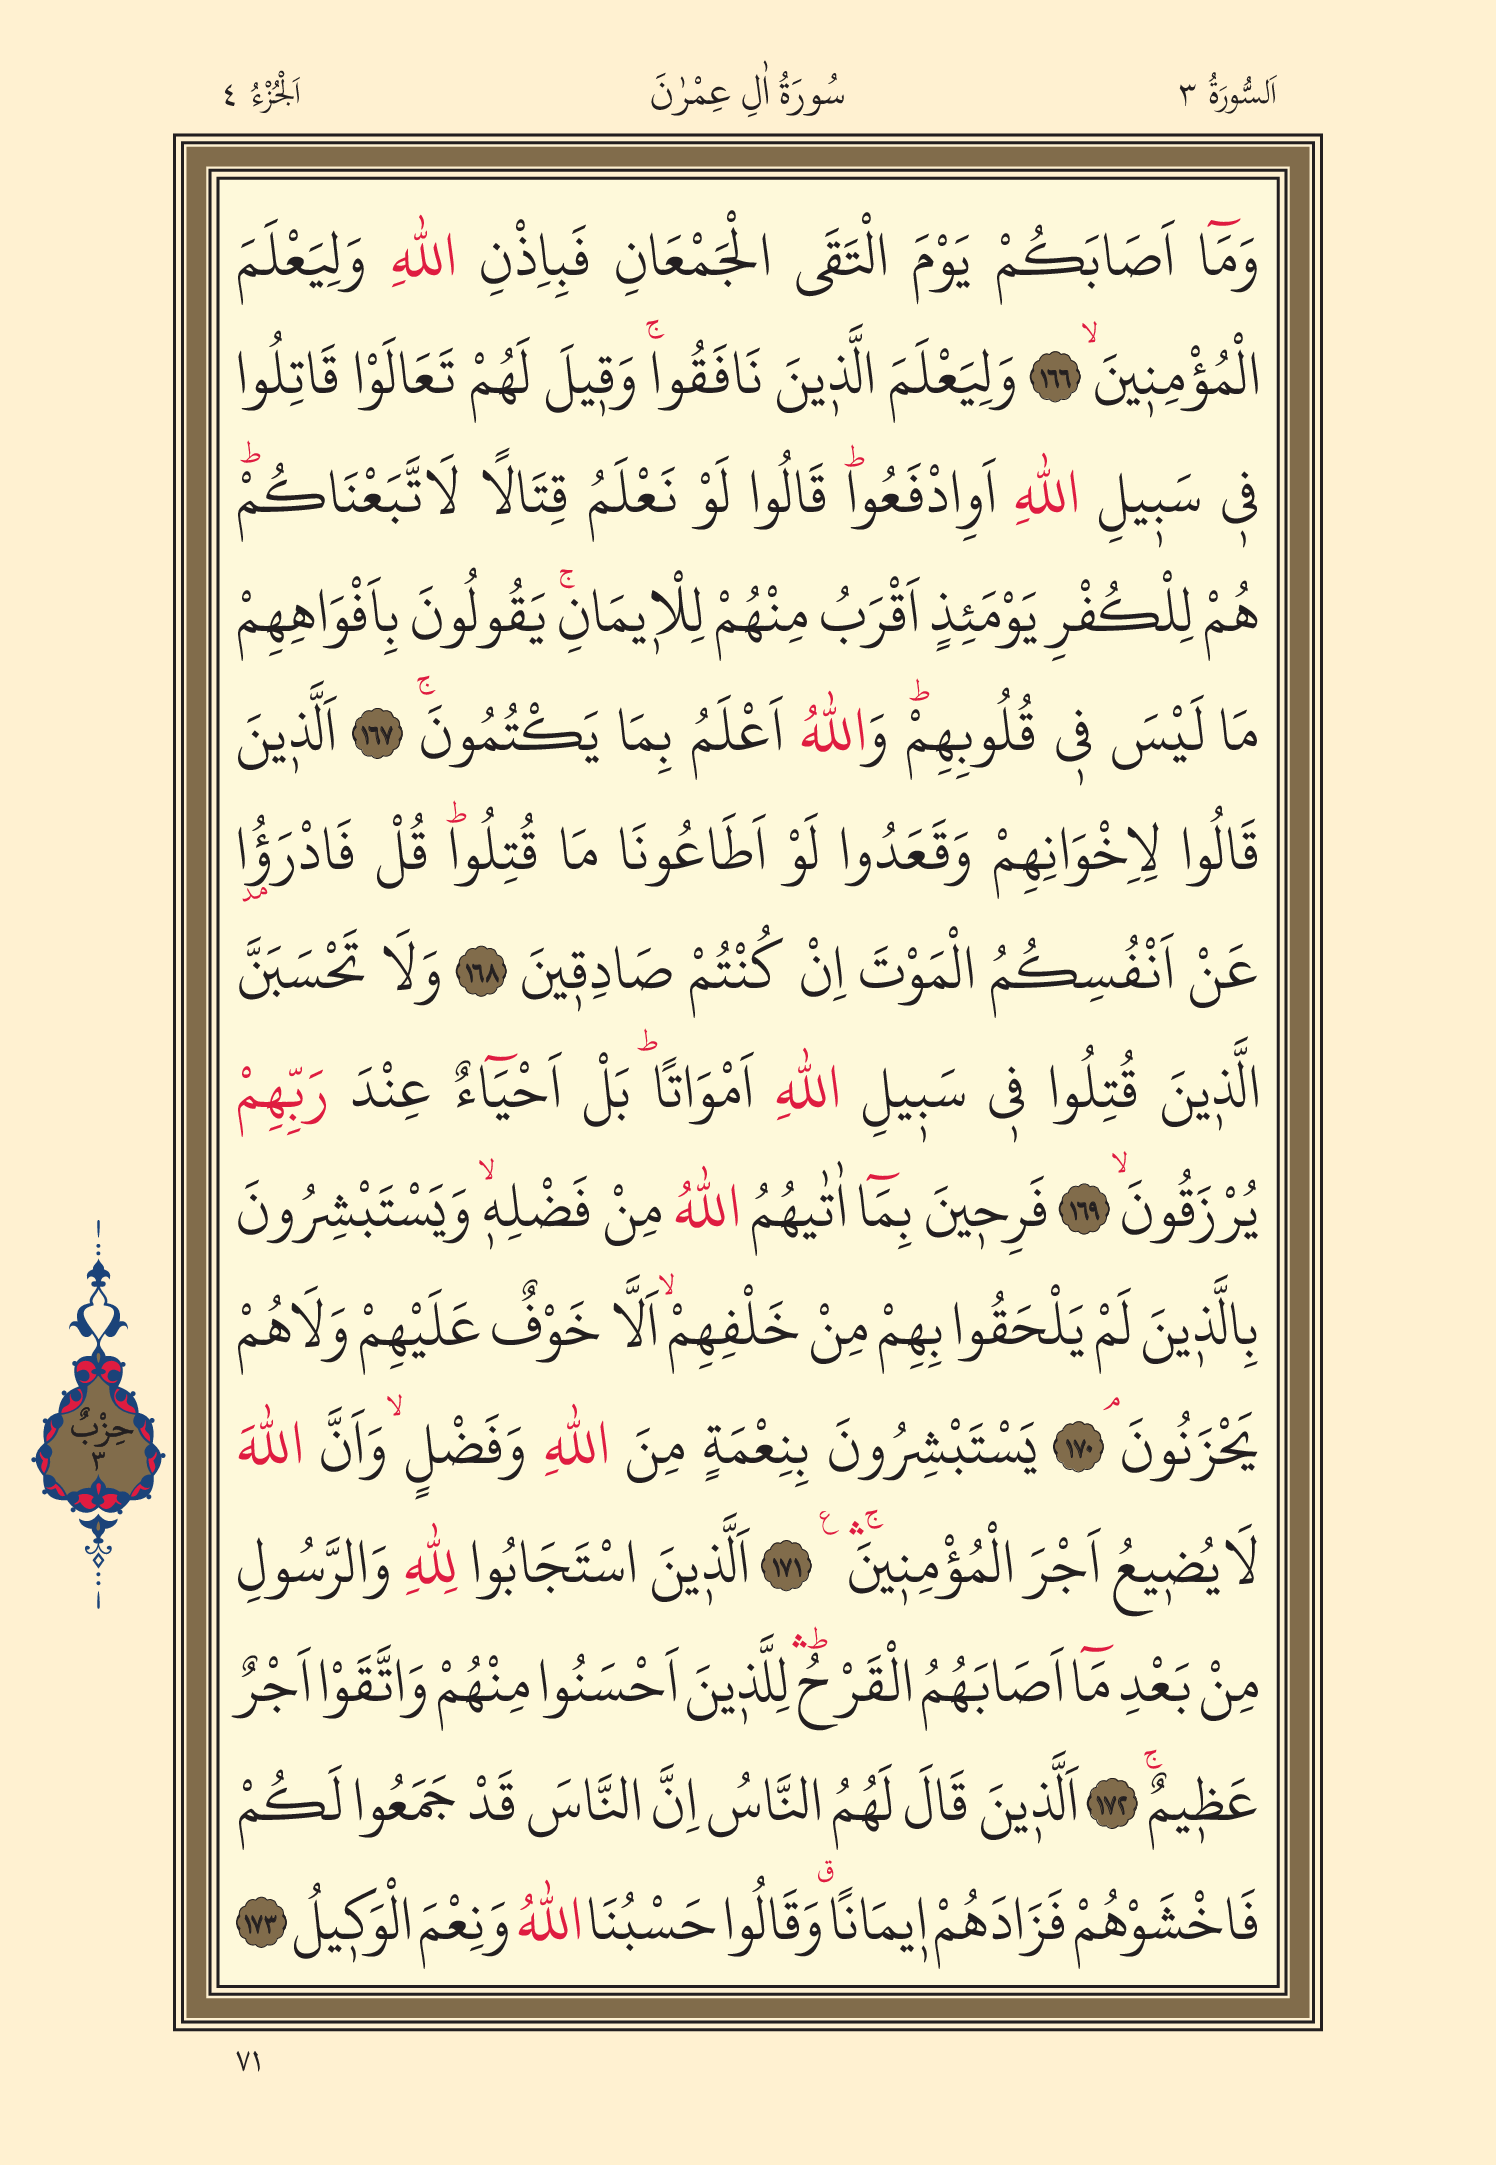 اَلسُّورَةُ ٣ سُورَةُ اٰلِ عِمْرٰنَ اَلْجُزْءُ ٤
وَمَٓا اَصَابَكُمْ يَوْمَ الْتَقَى الْجَمْعَانِ فَبِاِذْنِ اللّٰهِ وَلِيَعْلَمَ
الْمُؤْمِن۪ينَۙ ١٦٦ وَلِيَعْلَمَ الَّذ۪ينَ نَافَقُواۚ وَق۪يلَ لَهُمْ تَعَالَوْا قَاتِلُوا
ف۪ي سَب۪يلِ اللّٰهِ اَوِادْفَعُواۜ قَالُوا لَوْ نَعْلَمُ قِتَالًا لَاتَّبَعْنَاكُمْۜ
هُمْ لِلْكُفْرِ يَوْمَئِذٍ اَقْرَبُ مِنْهُمْ لِلْا۪يمَانِۚ يَقُولُونَ بِاَفْوَاهِهِمْ
مَا لَيْسَ ف۪ي قُلُوبِهِمْۜ وَاللّٰهُ اَعْلَمُ بِمَا يَكْتُمُونَۚ ١٦٧ اَلَّذ۪ينَ
قَالُوا لِاِخْوَانِهِمْ وَقَعَدُوا لَوْ اَطَاعُونَا مَا قُتِلُواۜ قُلْ فَادْرَؤُ۫ا
عَنْ اَنْفُسِكُمُ الْمَوْتَ اِنْ كُنْتُمْ صَادِق۪ينَ ١٦٨ وَلَا تَحْسَبَنَّ
الَّذ۪ينَ قُتِلُوا ف۪ي سَب۪يلِ اللّٰهِ اَمْوَاتًاۜ بَلْ اَحْيَٓاءٌ عِنْدَ رَبِّهِمْ
يُرْزَقُونَۙ ١٦٩ فَرِح۪ينَ بِمَٓا اٰتٰيهُمُ اللّٰهُ مِنْ فَضْلِه۪ۙ وَيَسْتَبْشِرُونَ
بِالَّذ۪ينَ لَمْ يَلْحَقُوا بِهِمْ مِنْ خَلْفِهِمْۙ اَلَّا خَوْفٌ عَلَيْهِمْ وَلَاهُمْ
يَحْزَنُونَۢ ١٧٠ يَسْتَبْشِرُونَ بِنِعْمَةٍ مِنَ اللّٰهِ وَفَضْلٍۙ وَاَنَّ اللّٰهَ
حِزْبٌ
٣
لَا يُض۪يعُ اَجْرَ الْمُؤْمِن۪ينَۚۛ ع ١٧١ اَلَّذ۪ينَ اسْتَجَابُوا لِلّٰهِ وَالرَّسُولِ
مِنْ بَعْدِ مَٓا اَصَابَهُمُ الْقَرْحُۜۛ لِلَّذ۪ينَ اَحْسَنُوا مِنْهُمْ وَاتَّقَوْا اَجْرٌ
عَظ۪يمٌۚ ١٧٢ اَلَّذ۪ينَ قَالَ لَهُمُ النَّاسُ اِنَّ النَّاسَ قَدْ جَمَعُوا لَكُمْ
فَاخْشَوْهُمْ فَزَادَهُمْ ا۪يمَانًاۗ وَقَالُوا حَسْبُنَا اللّٰهُ وَنِعْمَ الْوَك۪يلُ ١٧٣
٧١